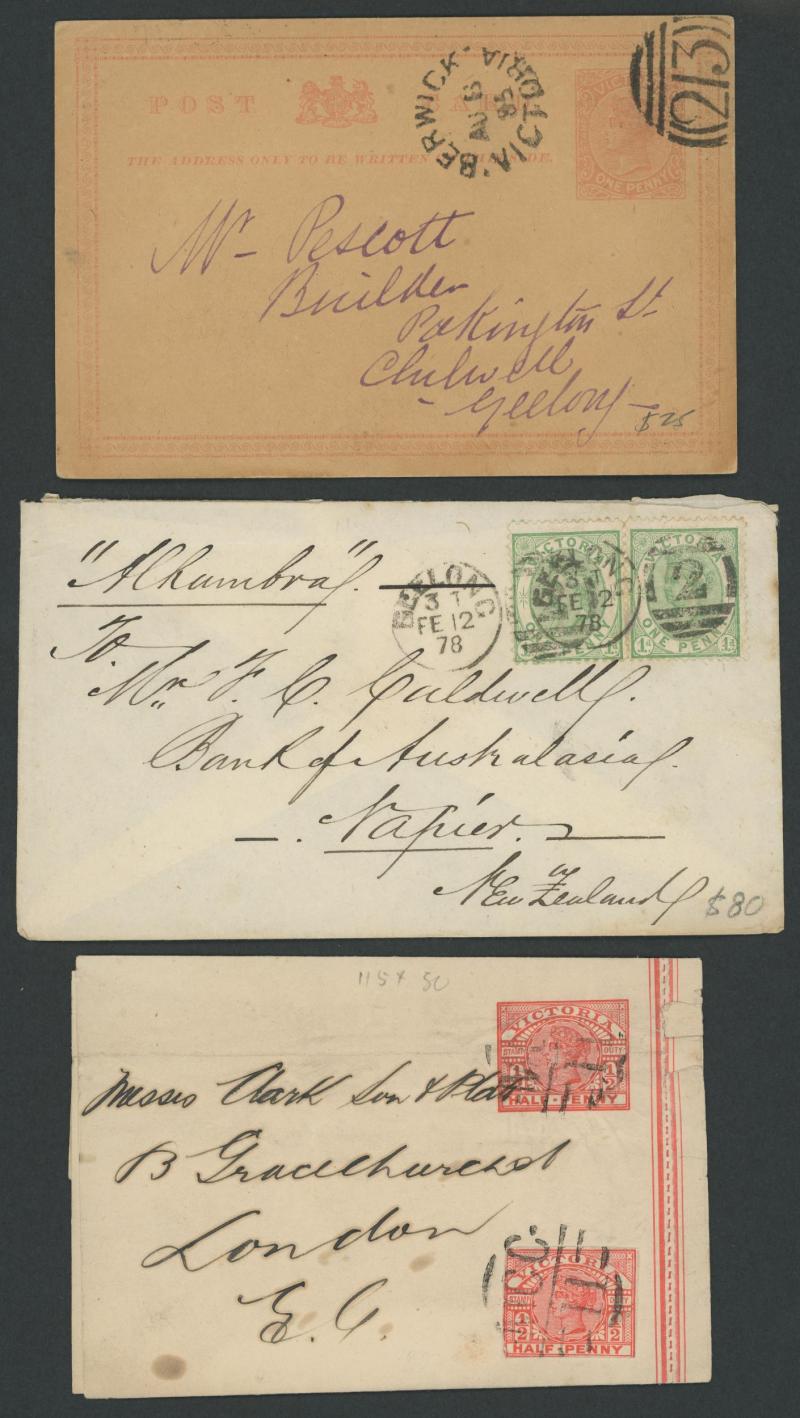 POST CARD
THE ADDRESS ONLY TO BE WRITTEN THIS SIDE.
BERWICK
AU
85
VICTORIA
VICTORIA
ONE PENNY
23
Mr Pescott
Builder
Pakington St
Chilwell
Geelong
$25
"Alhambra".
GEELONG
3 T
FE 12
78
GEELONG
3 T
FE 12
78
VICTORIA
ONE PENNY
1d 1d
VICTORIA
2
ONE PENNY
1d 1d
To
Mr. F. C. Caldwell.
Bank of Australasia.
Napier.
New Zealand
$80
115 x 50
VICTORIA
STAMP DUTY
1/2 1/2
HALF-PENNY
Messrs Clark Son & Platt
B Gracechurch st
London
E. C.
VICTORIA
STAMP DUTY
1/2 1/2
HALF PENNY